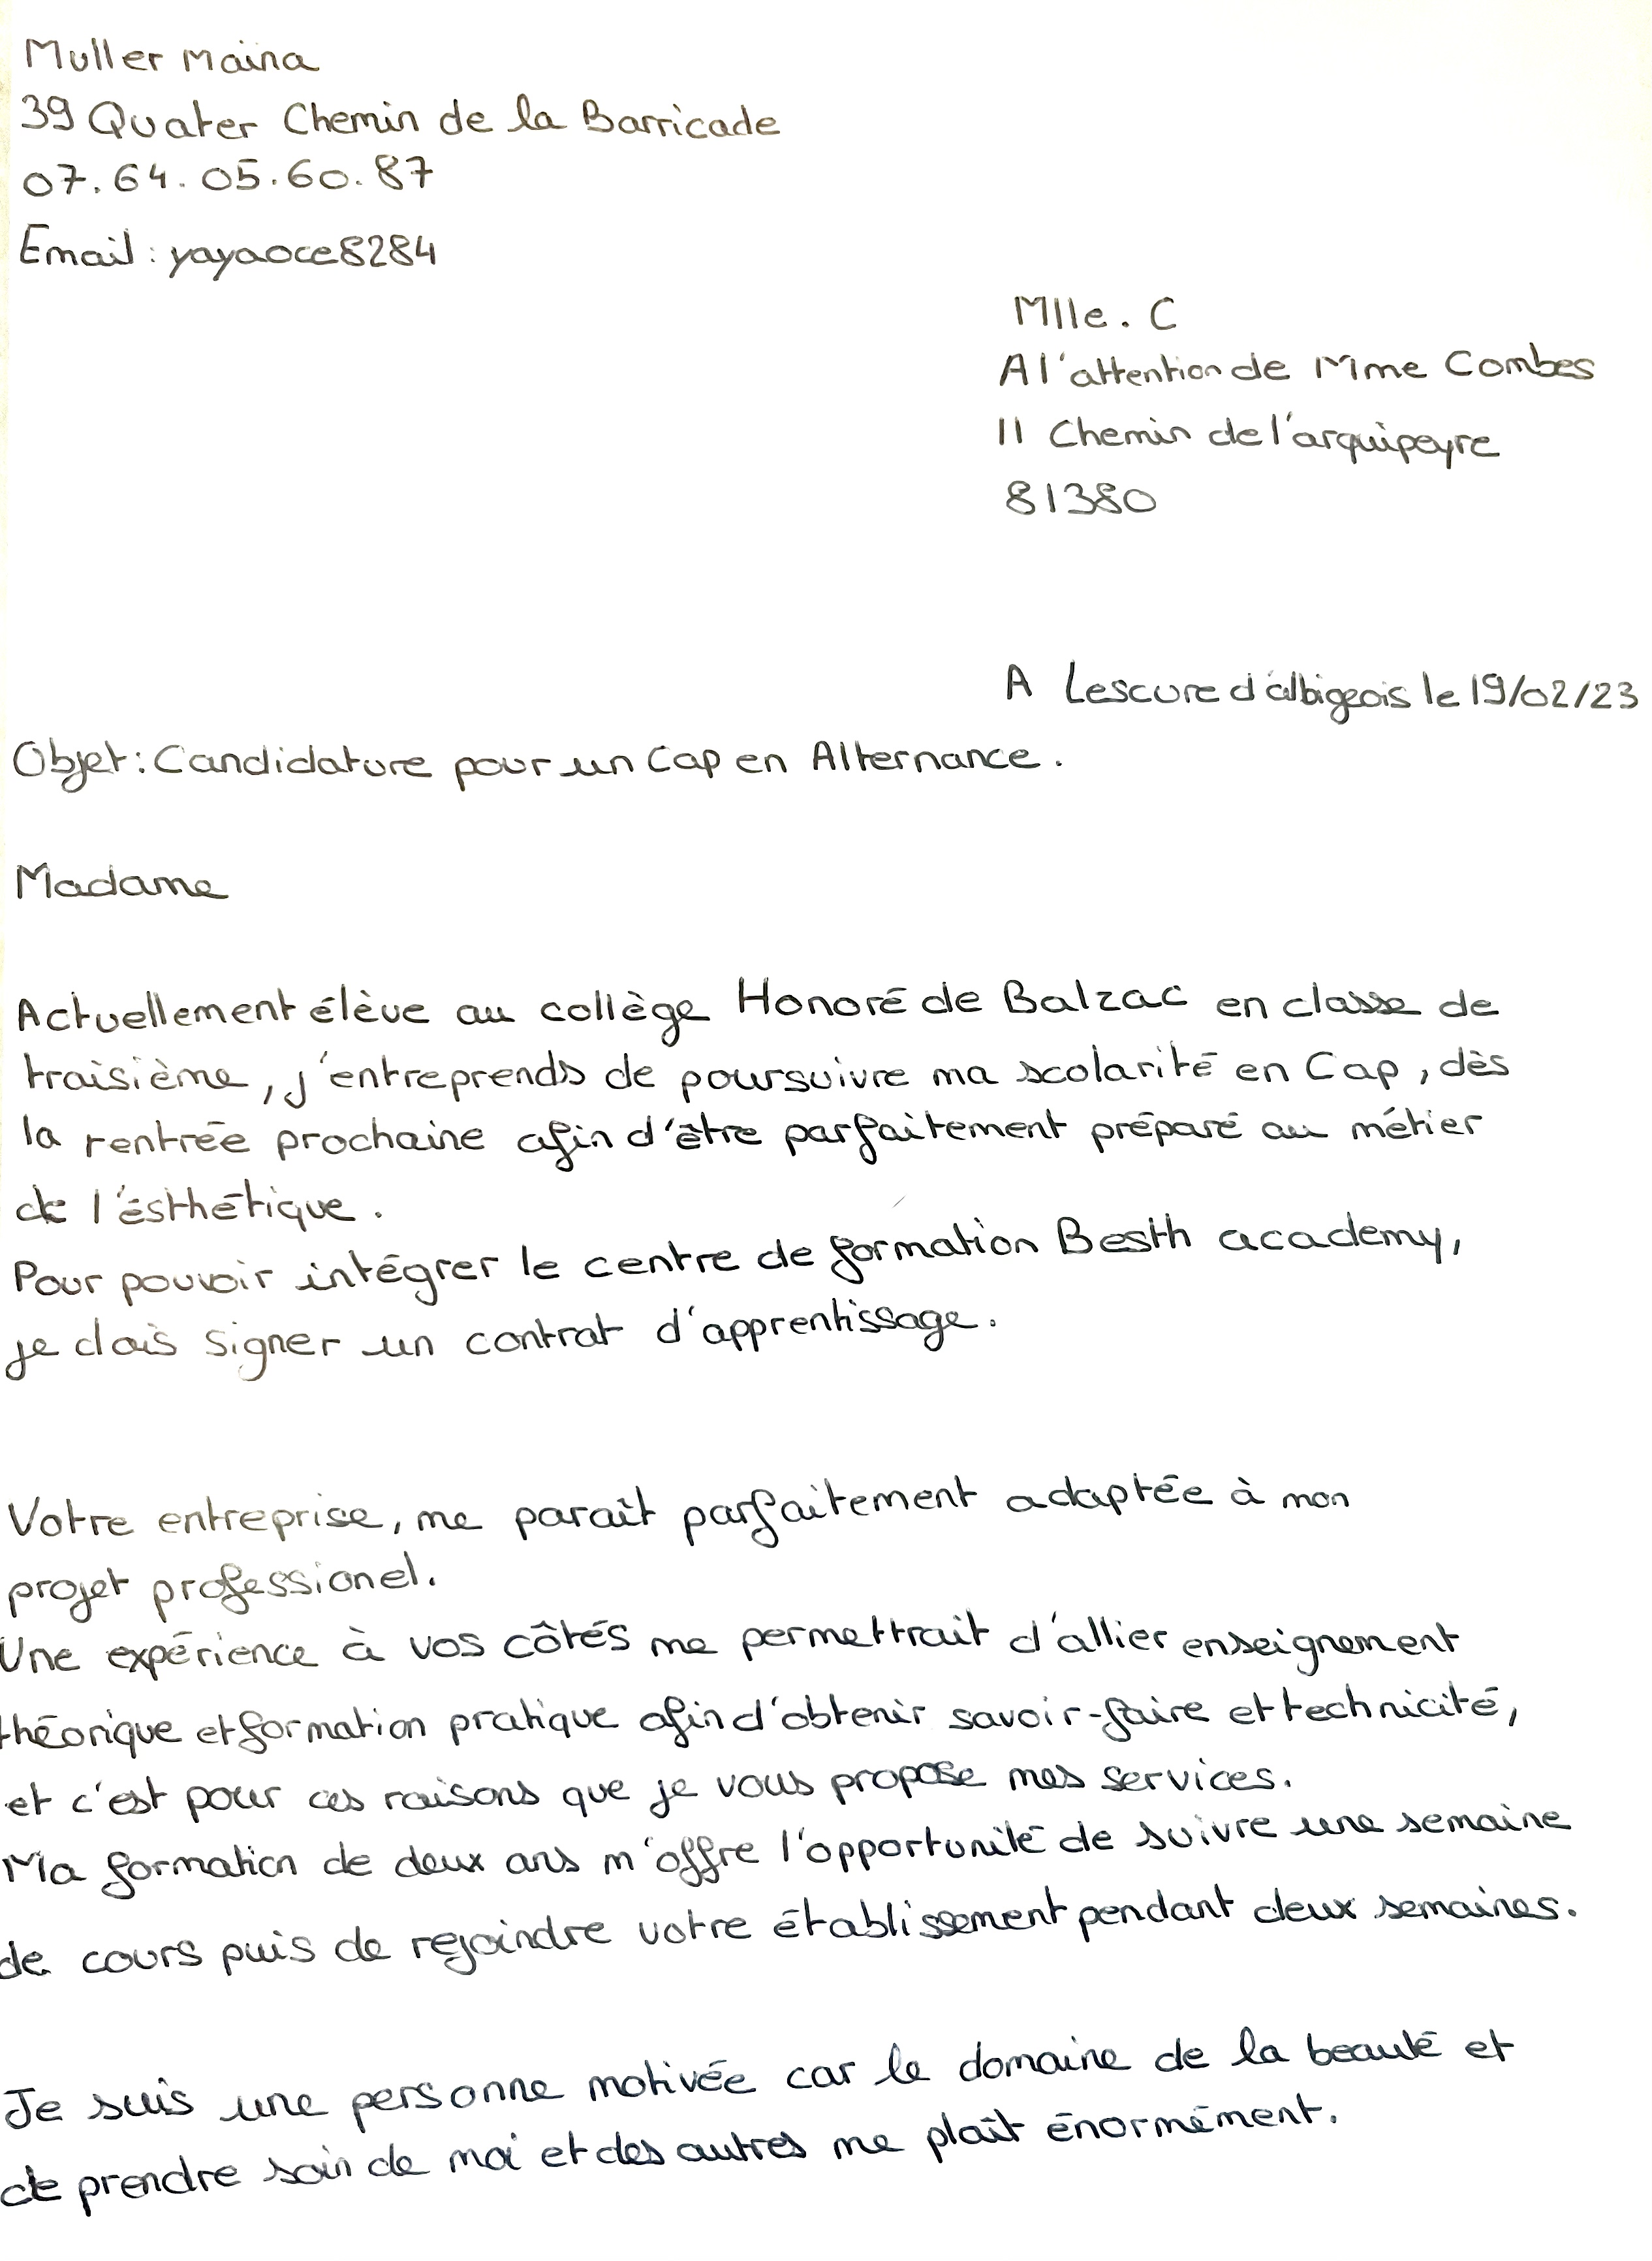 Muller Maina
39 Quater Chemin de la Barricade
07.64.05.60.87
Email : yayaoce8284
Mlle. C
A l'attention de Mme Combes
11 Chemin de l'arquipeyre
81380
A Lescure d'albigeois le 19/02/23
Objet : Candidature pour un Cap en Alternance.
Madame
Actuellement élève au collège Honoré de Balzac en classe de
troisième, j'entreprends de poursuivre ma scolarité en Cap, dès
la rentrée prochaine afin d'être parfaitement préparé au métier
de l'ésthétique.
Pour pouvoir intégrer le centre de formation Besth academy,
je dois signer un contrat d'apprentissage.
Votre entreprise, me paraît parfaitement adaptée à mon
projet professionel.
Une expérience à vos côtés me permettrait d'allier enseignement
théorique et formation pratique afin d'obtenir savoir-faire et technicité,
et c'est pour ces raisons que je vous propose mes services.
Ma formation de deux ans m'offre l'opportunité de suivre une semaine
de cours puis de rejoindre votre établissement pendant deux semaines.
Je suis une personne motivée car le domaine de la beauté et
de prendre soin de moi et des autres me plaît énormément.